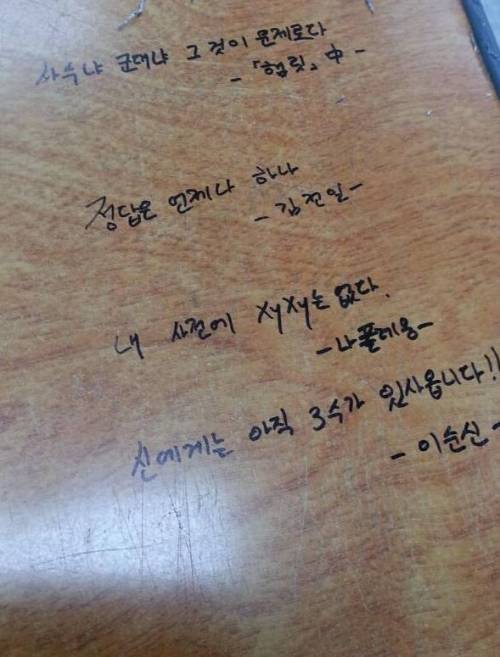 사수냐 군대냐 그것이 문제로다
-「햄릿」中-
정답은 언제나 하나
-김전일-
내 사전에 xyxy는 없다.
-나폴레옹-
신에게는 아직 3수가 있사옵니다!!
-이순신-